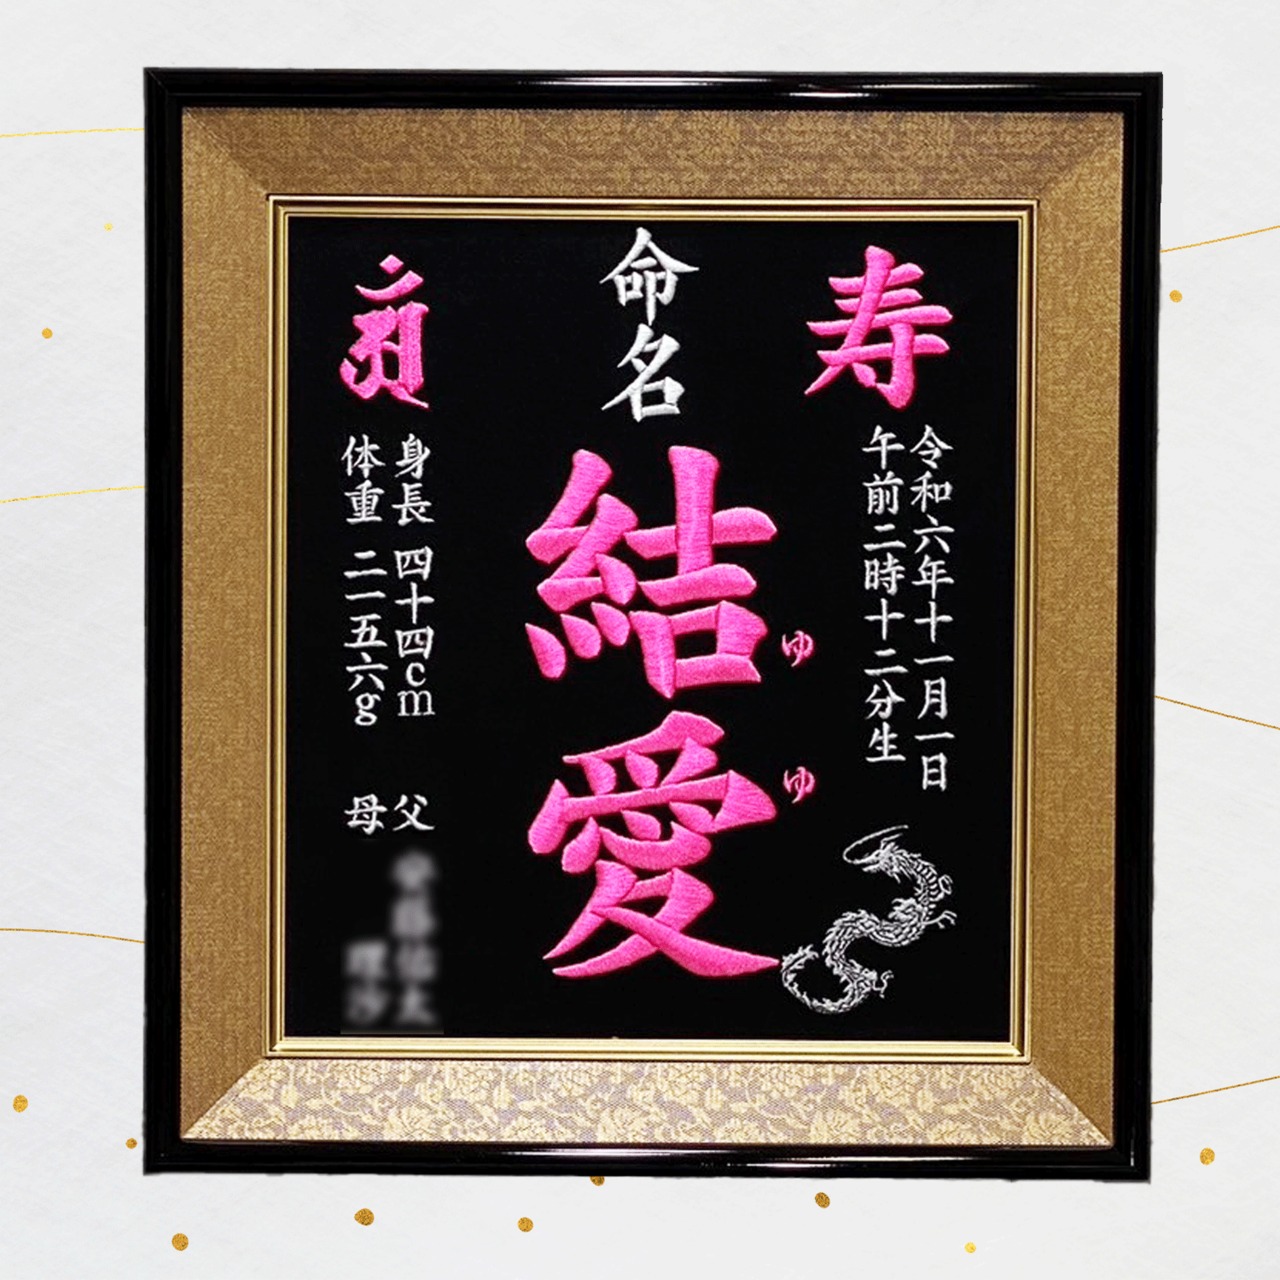 寿
令和六年十一月一日
午前二時十二分生
命名
結愛
ゆ
ゆ
身長 四十四cm
体重 二一五六g
父
母